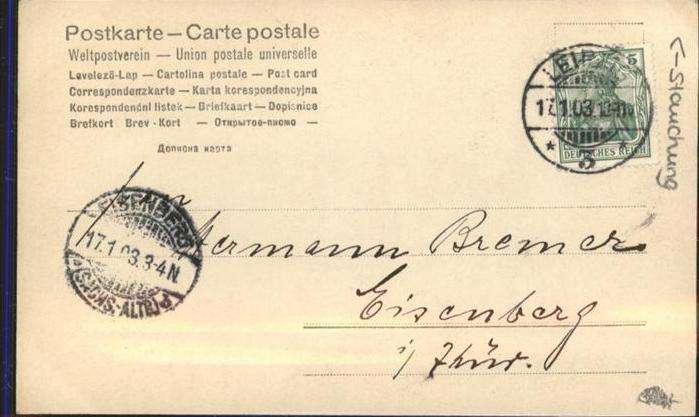 Postkarte — Carte postale
Weltpostverein — Union postale universelle
Levelező-Lap — Cartolina postale — Post card
Correspondenzkarte — Karta korespondencyjna
Korespondenční listek — Briefkaart — Dopisnice
Brefkort Brev-Kort — Открытое-письмо —
Дописна карта
LEIPZIG
5
17.1.03.
* 5
DEUTSCHES REICH
<-Stauchung
EISENBERG
17.1.03.3-4N.
(SACHS.-ALTB)
Hermann Bremer
Eisenberg
i/Thür.